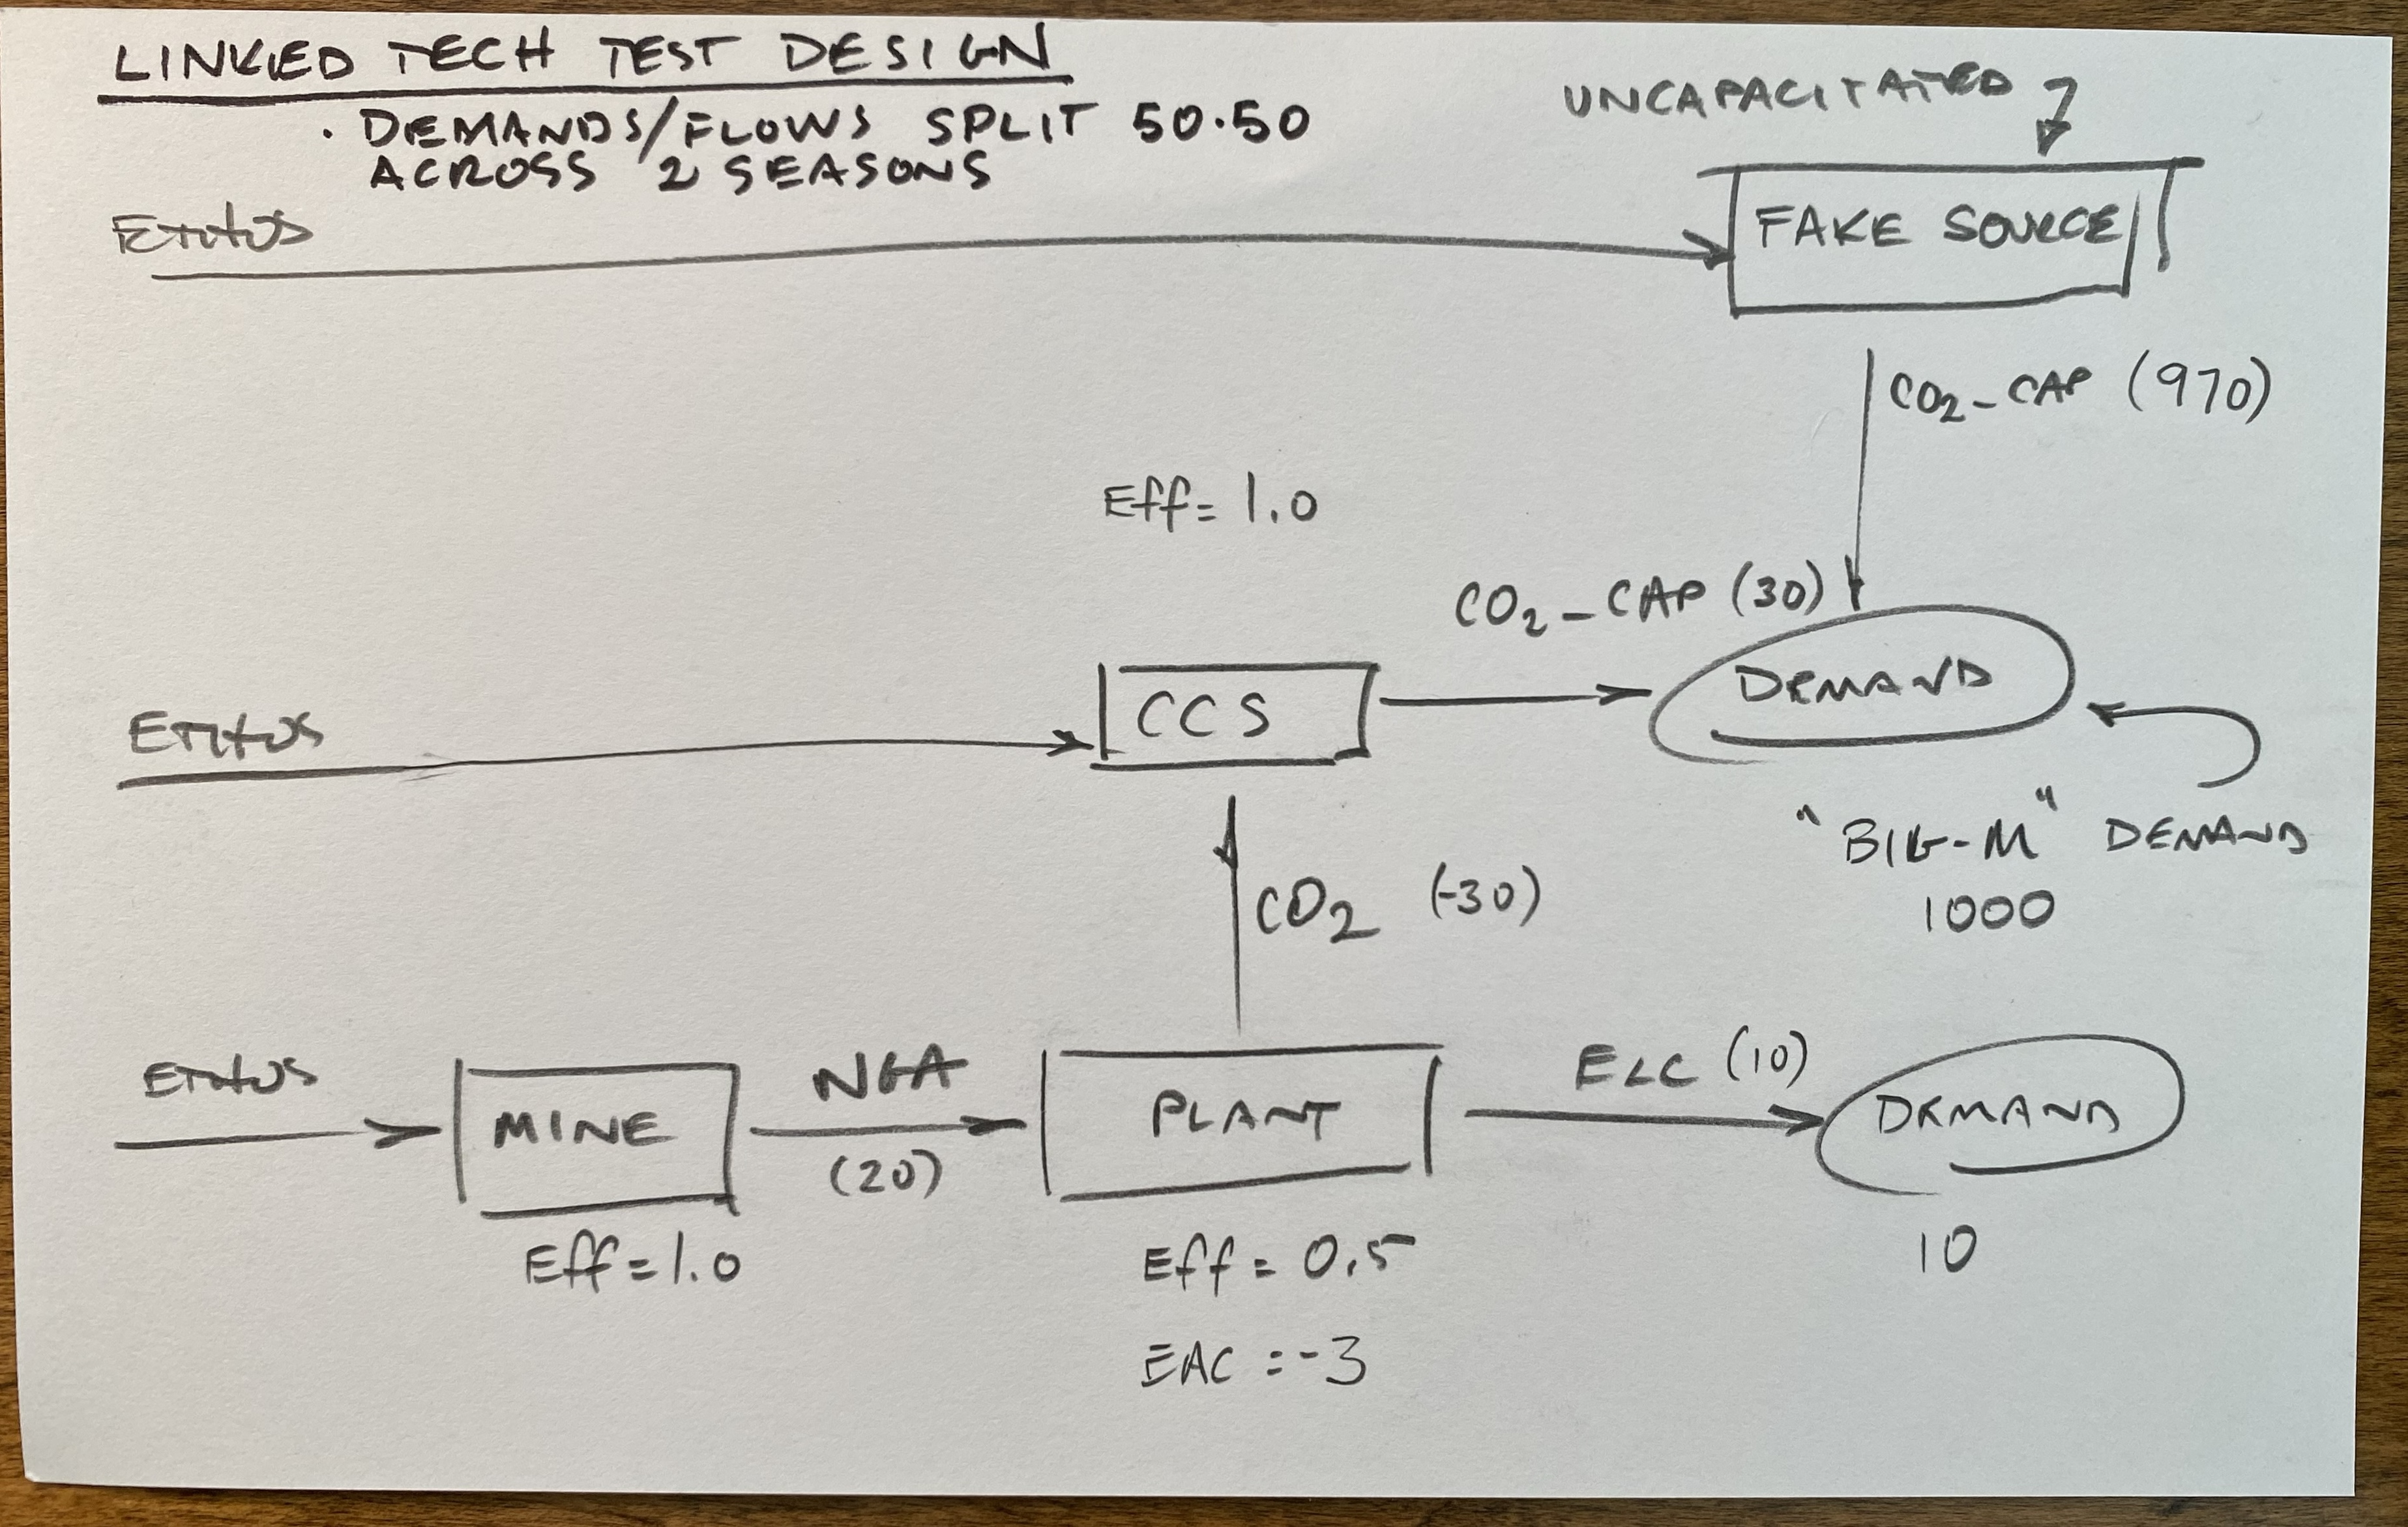 LINKED TECH TEST DESIGN
· DEMANDS/FLOWS SPLIT 50.50
ACROSS 2 SEASONS
UNCAPACITATED
Ethos
FAKE SOURCE
CO2-CAP (970)
Eff = 1.0
CO2-CAP (30)
Ethos
CCS
DEMAND
"BIG-M" DEMAND
1000
CO2 (-30)
Ethos
MINE
NGA
(20)
PLANT
ELC (10)
DEMAND
Eff = 1.0
Eff = 0.5
10
EAC = -3